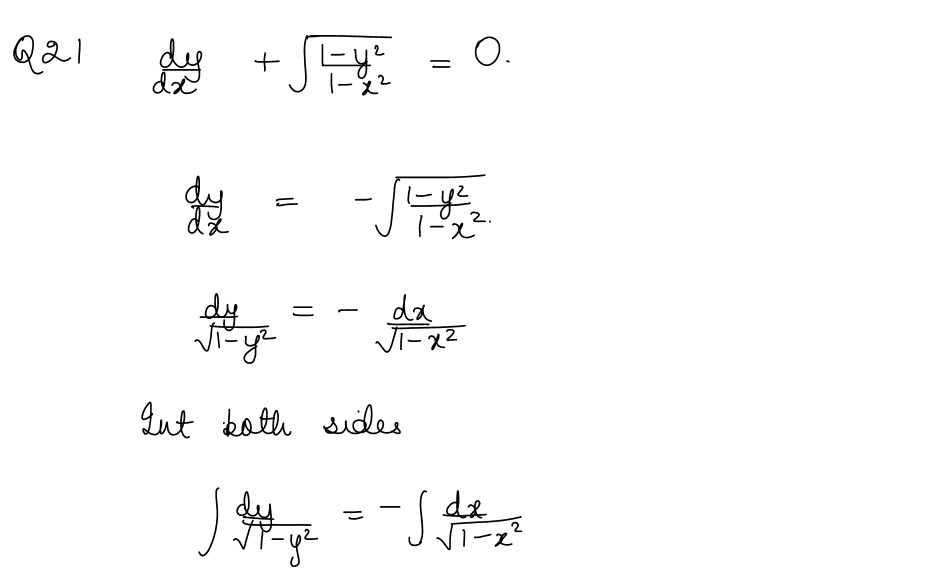 Q21 dy/dx + √(1-y²/1-x²) = 0.
dy/dx = -√(1-y²/1-x².)
dy/√(1-y²) = - dx/√(1-x²)
Int both sides
∫ dy/√(1-y²) = -∫ dx/√(1-x²)